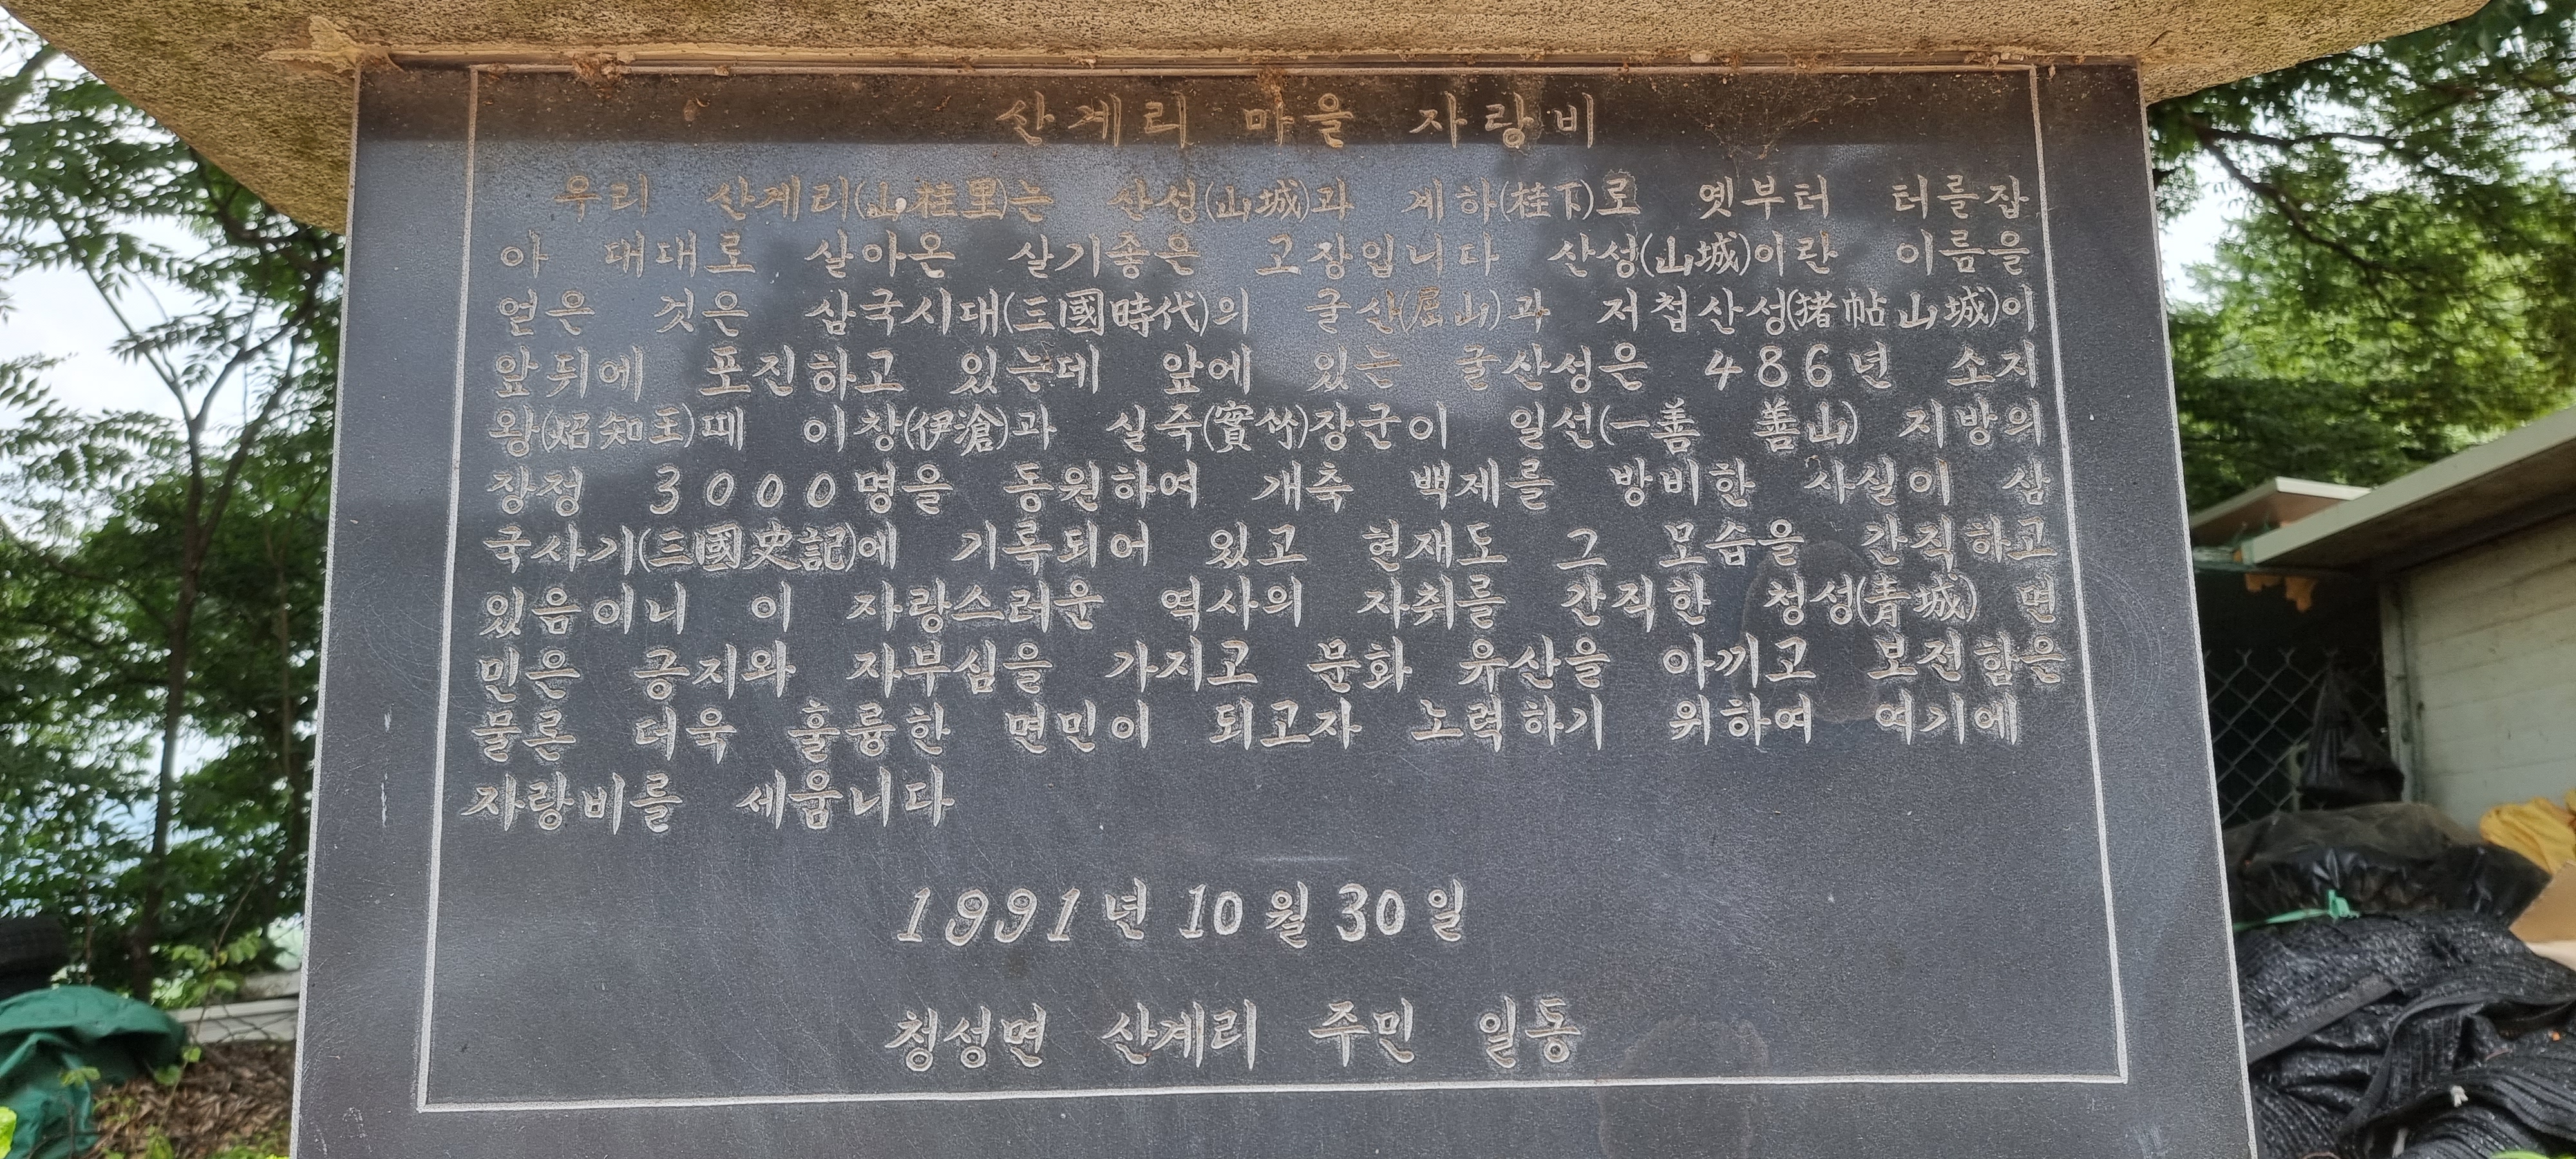 산계리 마을 자랑비
우리 산계리(山桂里)는 산성(山城)과 계하(桂下)로 옛부터 터를잡
아 대대로 살아온 살기좋은 고장입니다 산성(山城)이란 이름을
얻은 것은 삼국시대(三國時代)의 굴산(屈山)과 저첩산성(猪帖山城)이
앞뒤에 포진하고 있는데 앞에 있는 굴산성은 486년 소지
왕(炤知王)때 이창(伊滄)과 실죽(實竹)장군이 일선(一善 善山) 지방의
장정 3000명을 동원하여 개축 백제를 방비한 사실이 삼
국사기(三國史記)에 기록되어 있고 현재도 그 모습을 간직하고
있음이니 이 자랑스러운 역사의 자취를 간직한 청성(靑城) 면
민은 긍지와 자부심을 가지고 문화 유산을 아끼고 보전함은
물론 더욱 훌륭한 면민이 되고자 노력하기 위하여 여기에
자랑비를 세웁니다
1991년 10월 30일
청성면 산계리 주민 일동